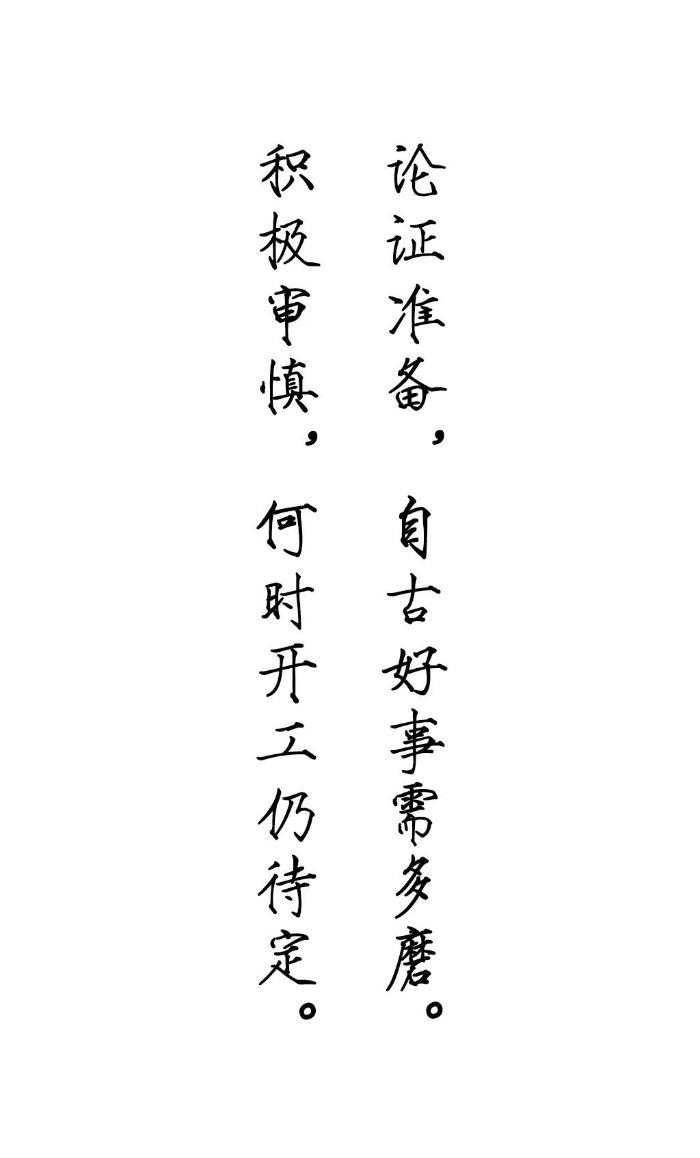 论证准备，自古好事需多磨。
积极审慎，何时开工仍待定。